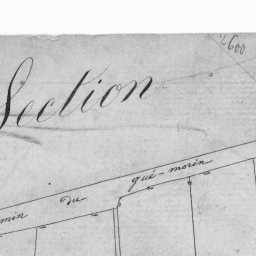 Section
2600
min du qué-morin